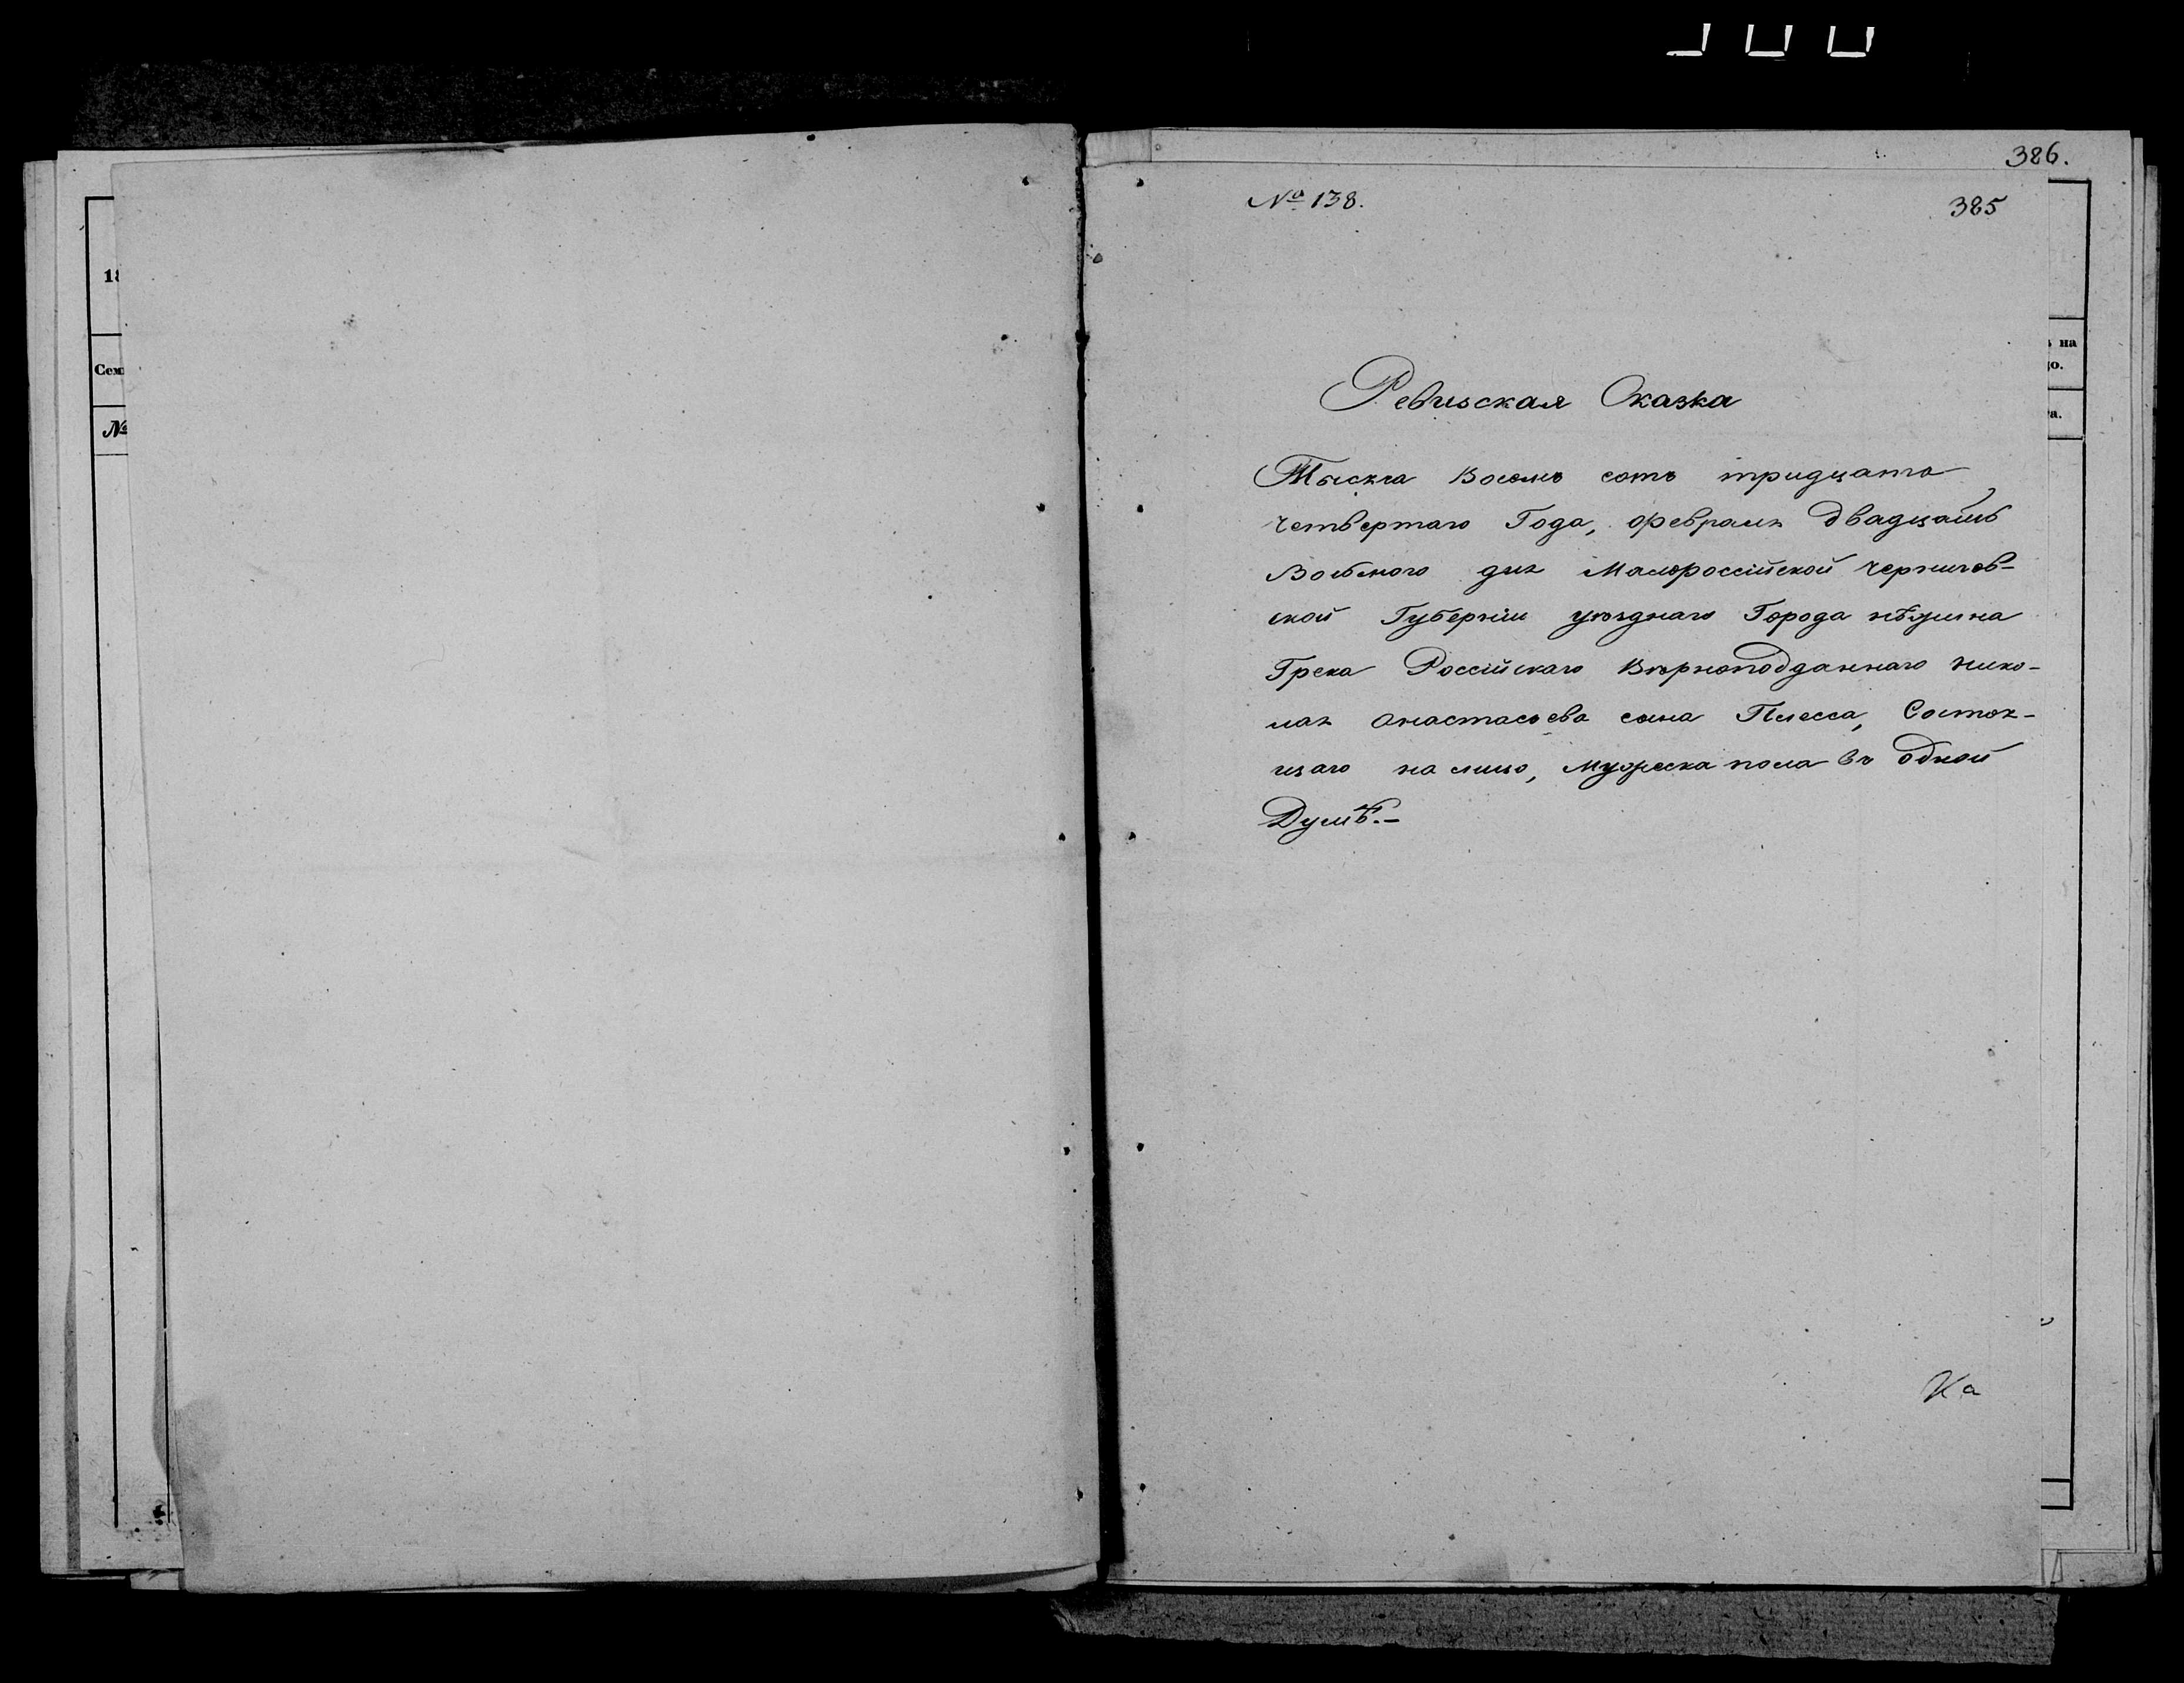 386.
№ 138.
385
18
Сем
№
ъ на
цо.
а.
Ревиская Сказка
Тысяча Восемь сотъ тридцато
четвертаго Года, февраля двадцать
Восьмого дня Малороссійской Чернигов-
ской Губерніи уѣзднаго Города нѣжина
Грека Россійскаго Вѣрноподданнаго нико-
лая Анастасьева сына Плесса, Состоя-
щаго на лицо, мужеска пола въ одной
Душѣ.-